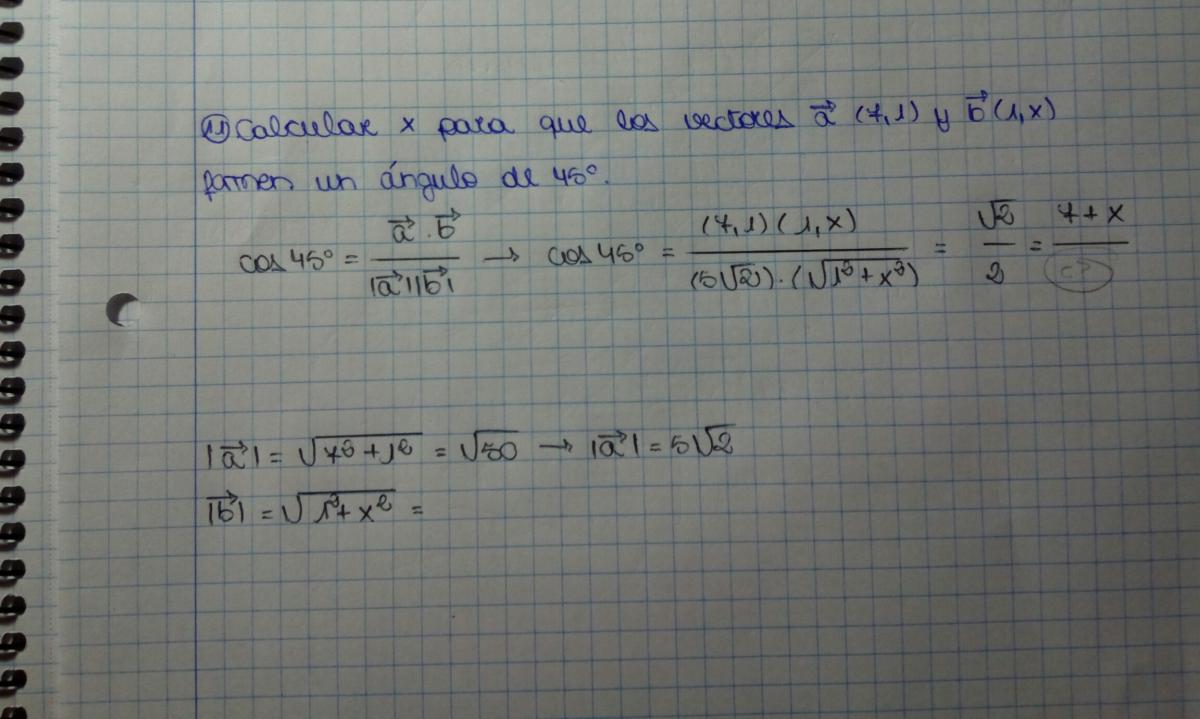 11 Calcular x para que los vectores a⃗ (7,1) y b⃗ (1,x)
formen un ángulo de 45º.
cos 45º = a⃗ · b⃗ / |a⃗||b⃗| → cos 45º = (7,1)(1,x) / (5√2)·(√1²+x²) = √2 / 2 = 7+x / ¿?
|a⃗| = √7²+1² = √50 → |a⃗| = 5√2
|b⃗| = √1²+x² =